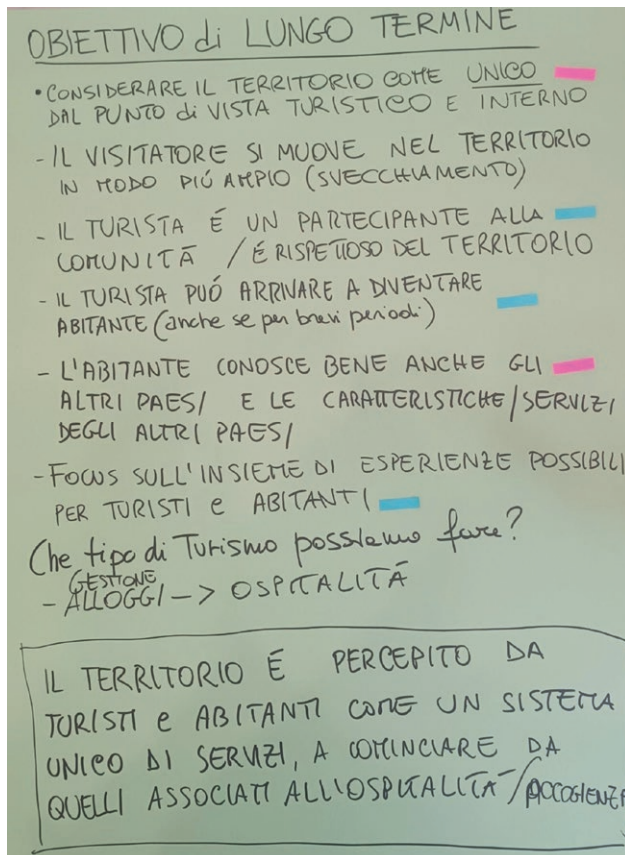 OBIETTIVO di LUNGO TERMINE
• CONSIDERARE IL TERRITORIO COME UNICO
DAL PUNTO di VISTA TURISTICO E INTERNO
- IL VISITATORE SI MUOVE NEL TERRITORIO
IN MODO PIÚ AMPIO (SVECCHIAMENTO)
- IL TURISTA É UN PARTECIPANTE ALLA
COMUNITÀ / É RISPETTOSO DEL TERRITORIO
- IL TURISTA PUÓ ARRIVARE A DIVENTARE
ABITANTE (anche se per brevi periodi)
- L'ABITANTE CONOSCE BENE ANCHE GLI
ALTRI PAESI E LE CARATTERISTICHE/SERVIZI
DEGLI ALTRI PAESI
- FOCUS SULL'INSIEME DI ESPERIENZE POSSIBILI
PER TURISTI e ABITANTI
Che tipo di Turismo possiamo fare?
GESTIONE
- ALLOGGI -> OSPITALITÁ
IL TERRITORIO É PERCEPITO DA
TURISTI e ABITANTI COME UN SISTEMA
UNICO DI SERVIZI, A COMINCIARE DA
QUELLI ASSOCIATI ALL'OSPITALITÀ/ACCOGLIENZA